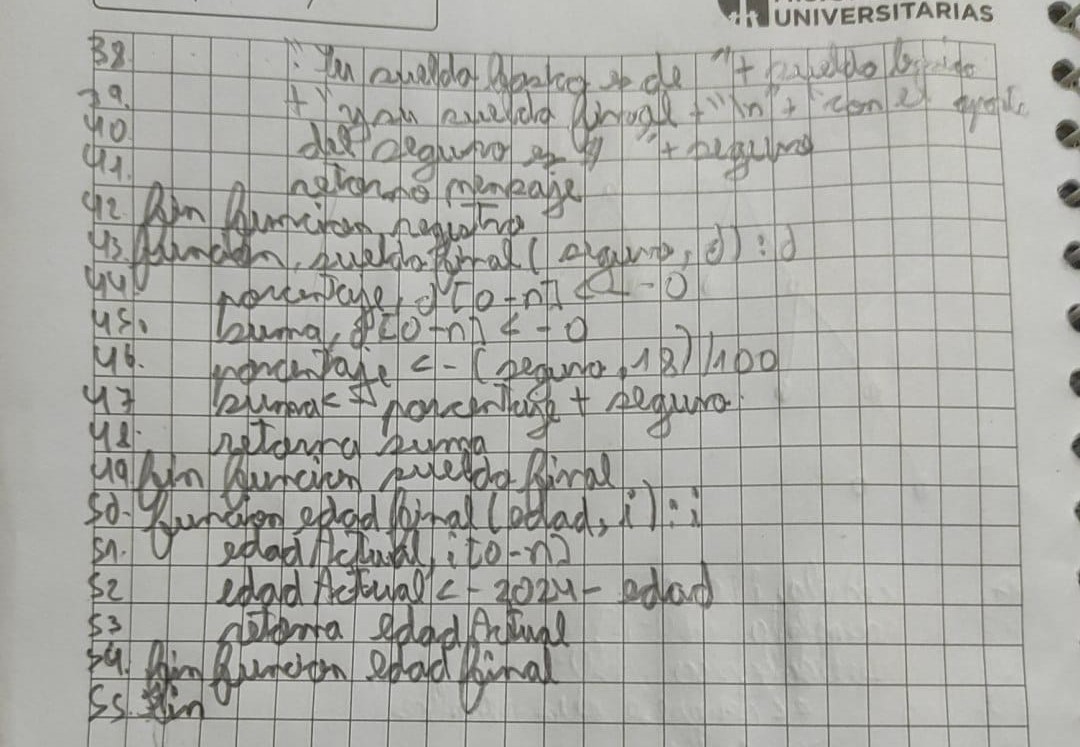 UNIVERSITARIAS
38. "Tu sueldo es de "+ sueldo
39. + "y su sueldo final + "\n" + "con el
40. del seguro es "+ seguro
41. retorno mensaje
42. Fin funcion registro
43. funcion, sueldo final (seguro, d) : d
44. porcentaje, d [0-n] <- 0
45. suma, d [0-n] <- 0
46. porcentaje <- (seguro, 18)/100
47 suma <- porcentaje + seguro.
48. retorna suma
49 fin funcion sueldo final
50- funcion edad final (edad, i) : i
51. edad Actual, i [0-n]
52 edad Actual <- 2024 - edad
53 retorna edad Actual
54. fin funcion edad final
55. Fin